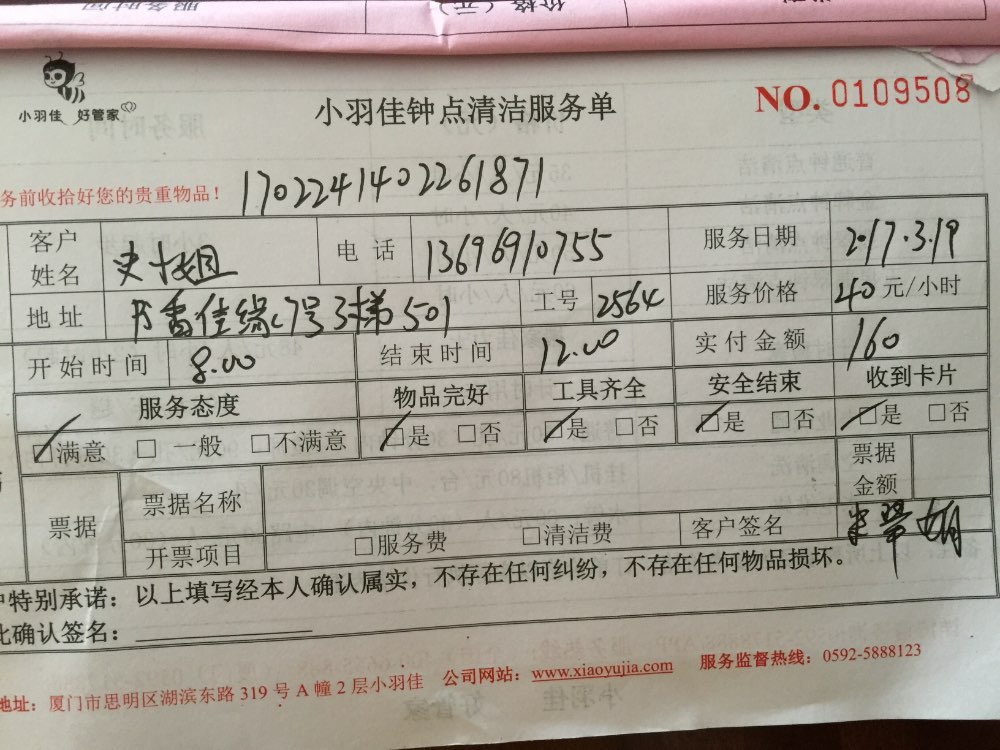 服务时间
价格（元）
类型
小羽佳 好管家
小羽佳钟点清洁服务单
NO. 0109508
务前收拾好您的贵重物品！
1702241402261871
客户姓名
电话 13696910755
服务日期 2017.3.19
地址 7号3梯501
工号 2564
服务价格 40元/小时
开始时间 8.00
结束时间 12.00
实付金额 160
服务态度 物品完好 工具齐全 安全结束 收到卡片
☑满意 □一般 □不满意 ☑是 □否 ☑是 □否 ☑是 □否 ☑是 □否
票据 票据名称 票据金额
开票项目 □服务费 □清洁费 客户签名
户特别承诺：以上填写经本人确认属实，不存在任何纠纷，不存在任何物品损坏。
此确认签名：
地址：厦门市思明区湖滨东路 319 号 A 幢 2 层小羽佳 公司网站：www.xiaoyujia.com 服务监督热线：0592-5888123